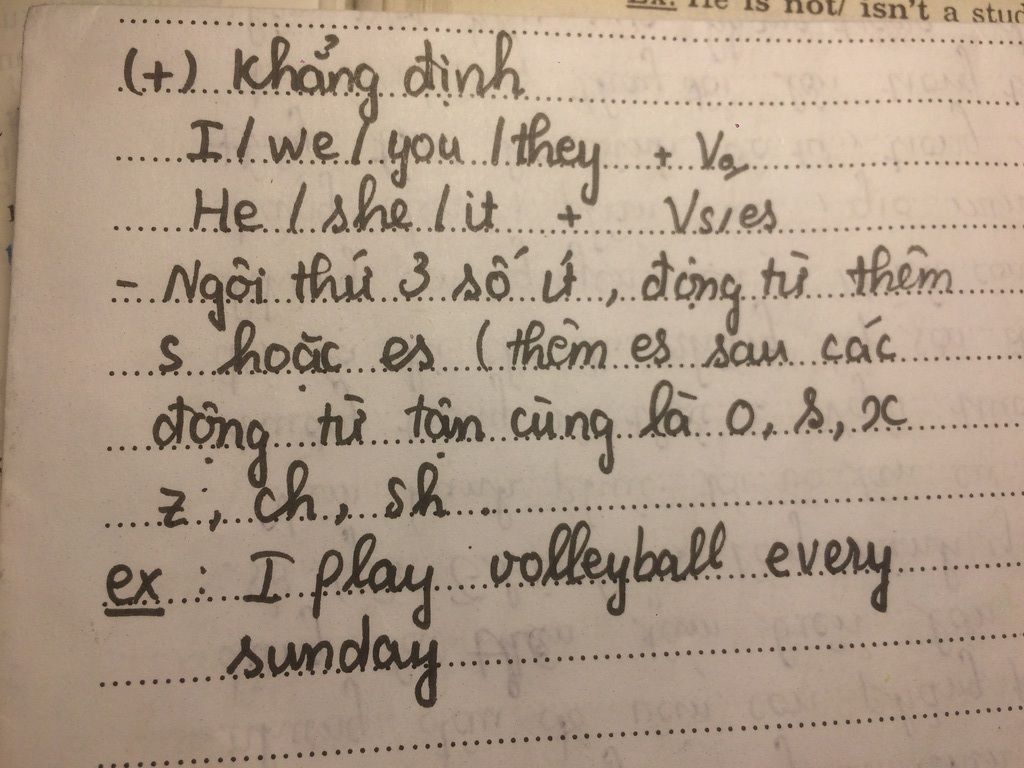 Ex: He is not/ isn't a stud
(+) Khẳng định
I / we / you / they + Vo
He / she / it + Vs/es
- Ngôi thứ 3 số ít, động từ thêm
s hoặc es ( thêm es sau các
động từ tận cùng là o, s, x
z, ch, sh.
ex : I play volleyball every
sunday